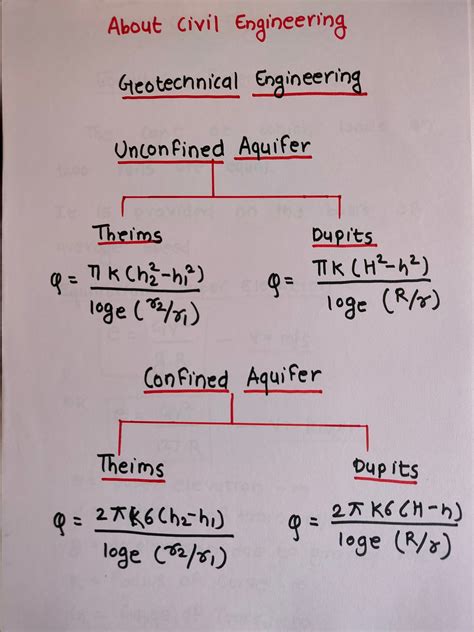 About Civil Engineering
Geotechnical Engineering
Unconfined Aquifer
Theims
Q = πK(h₂²-h₁²) / loge (r₂/r₁)
Dupits
Q = πK(H²-h²) / loge (R/r)
Confined Aquifer
Theims
Q = 2πK6(h₂-h₁) / loge (r₂/r₁)
Dupits
Q = 2πK6(H-h) / loge (R/r)